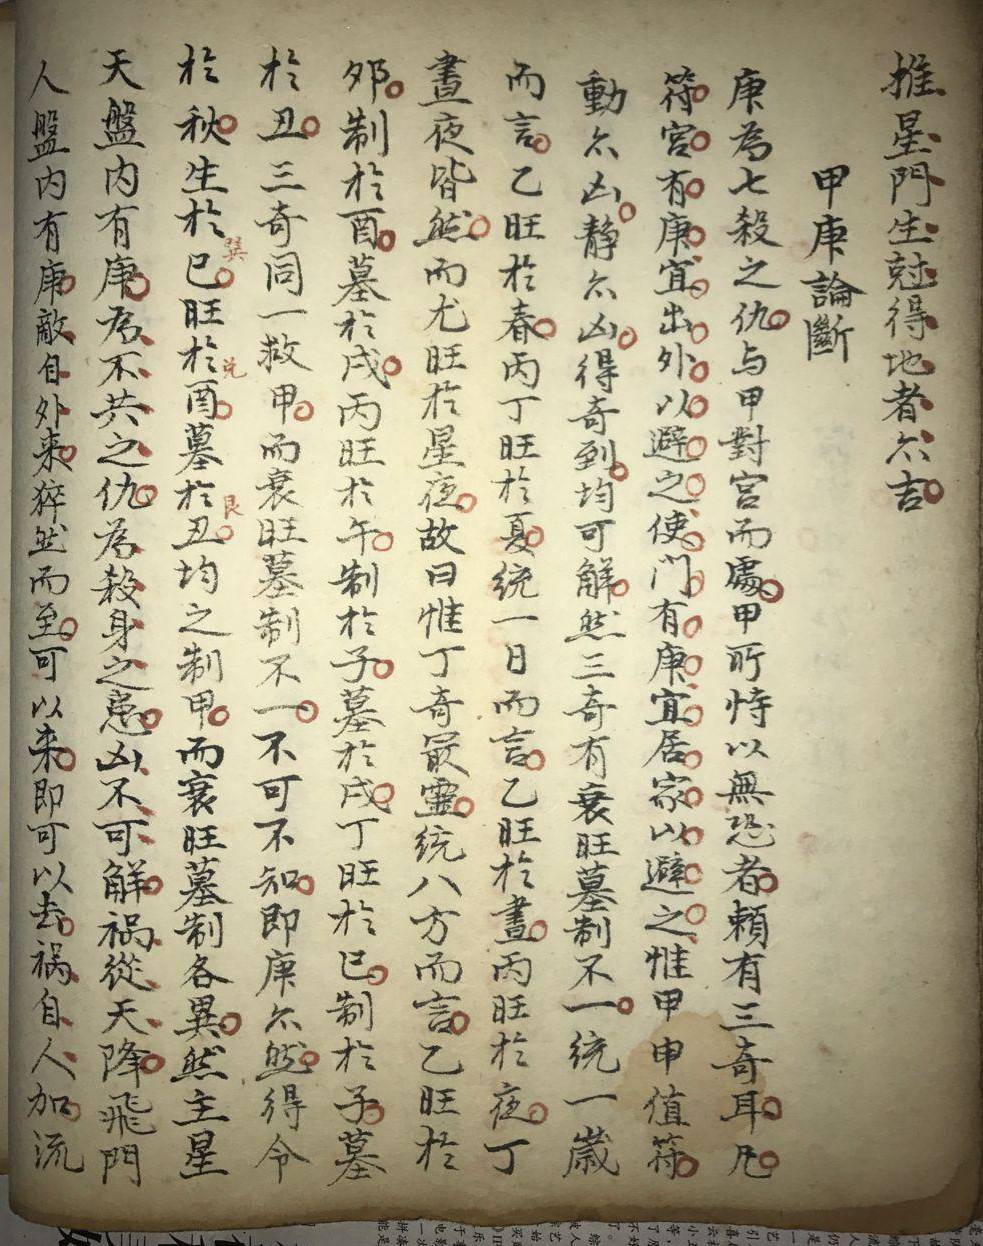 推星門生尅得地者亦吉
甲庚論斷
庚為七殺之仇与甲對宮而處甲所恃以無恐者賴有三奇耳凡
符宮有庚宜出外以避之使门有庚宜居家以避之惟甲申值符
動亦凶静亦凶得奇到均可解然三奇有衰旺墓制不一統一歲
而言乙旺於春丙丁旺於夏統一日而言乙旺於晝丙旺於夜丁
晝夜皆然而尤旺於星夜故曰惟丁奇最靈統八方而言乙旺於
夘制於酉墓於戌丙旺於午制於子墓於戌丁旺於巳制於子墓
於丑三奇同一救甲而衰旺墓制不一不可不知即庚亦然得令
於秋生於巳旺於酉墓於丑均之制甲而衰旺墓制各異然主星
巽
兑
艮
天盤内有庚為不共之仇為殺身之患凶不可解禍從天降飛門
人盤内有庚敵自外来猝然而至可以来即可以去禍自人加流